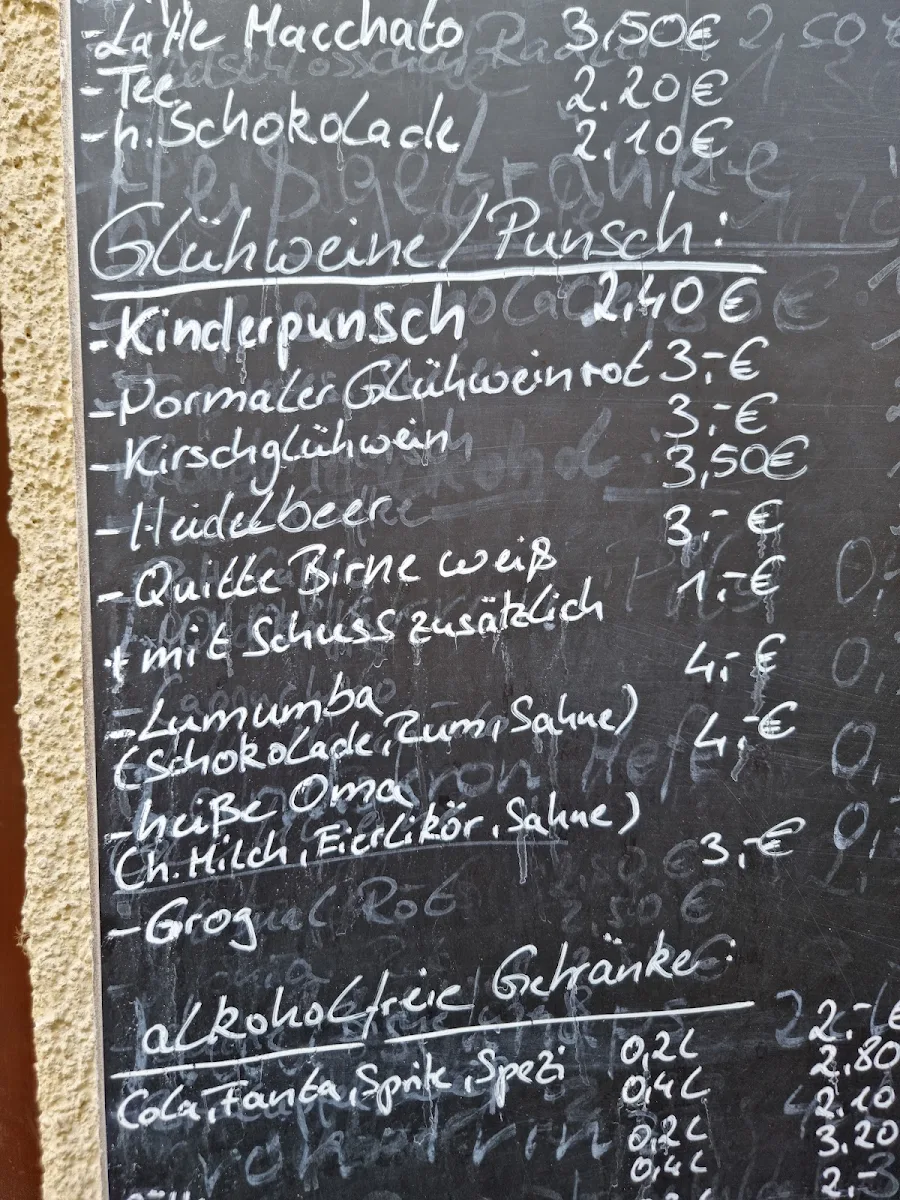 - Latte Macchato 3,50€
- Tee 2.20€
- h. Schokolade 2,10€
Glühweine/Punsch:
- Kinderpunsch 2,40 €
- Normaler Glühwein rot 3,- €
- Kirschglühwein 3,- €
- Heidelbeere 3,50€
- Quitte Birne weiß 3,- €
+ mit Schuss zusätzlich 1,- €
- Lumumba 4,- €
(Schokolade, Rum, Sahne)
- heiße Oma 4,- €
(h. Milch, Eierlikör, Sahne)
- Grog 3,- €
alkoholfreie Getränke:
Cola, Fanta, Sprite, Spezi 0,2L 2,- €
0,4L 2,80
0,2L 2,10
0,4L 3,20
2,-